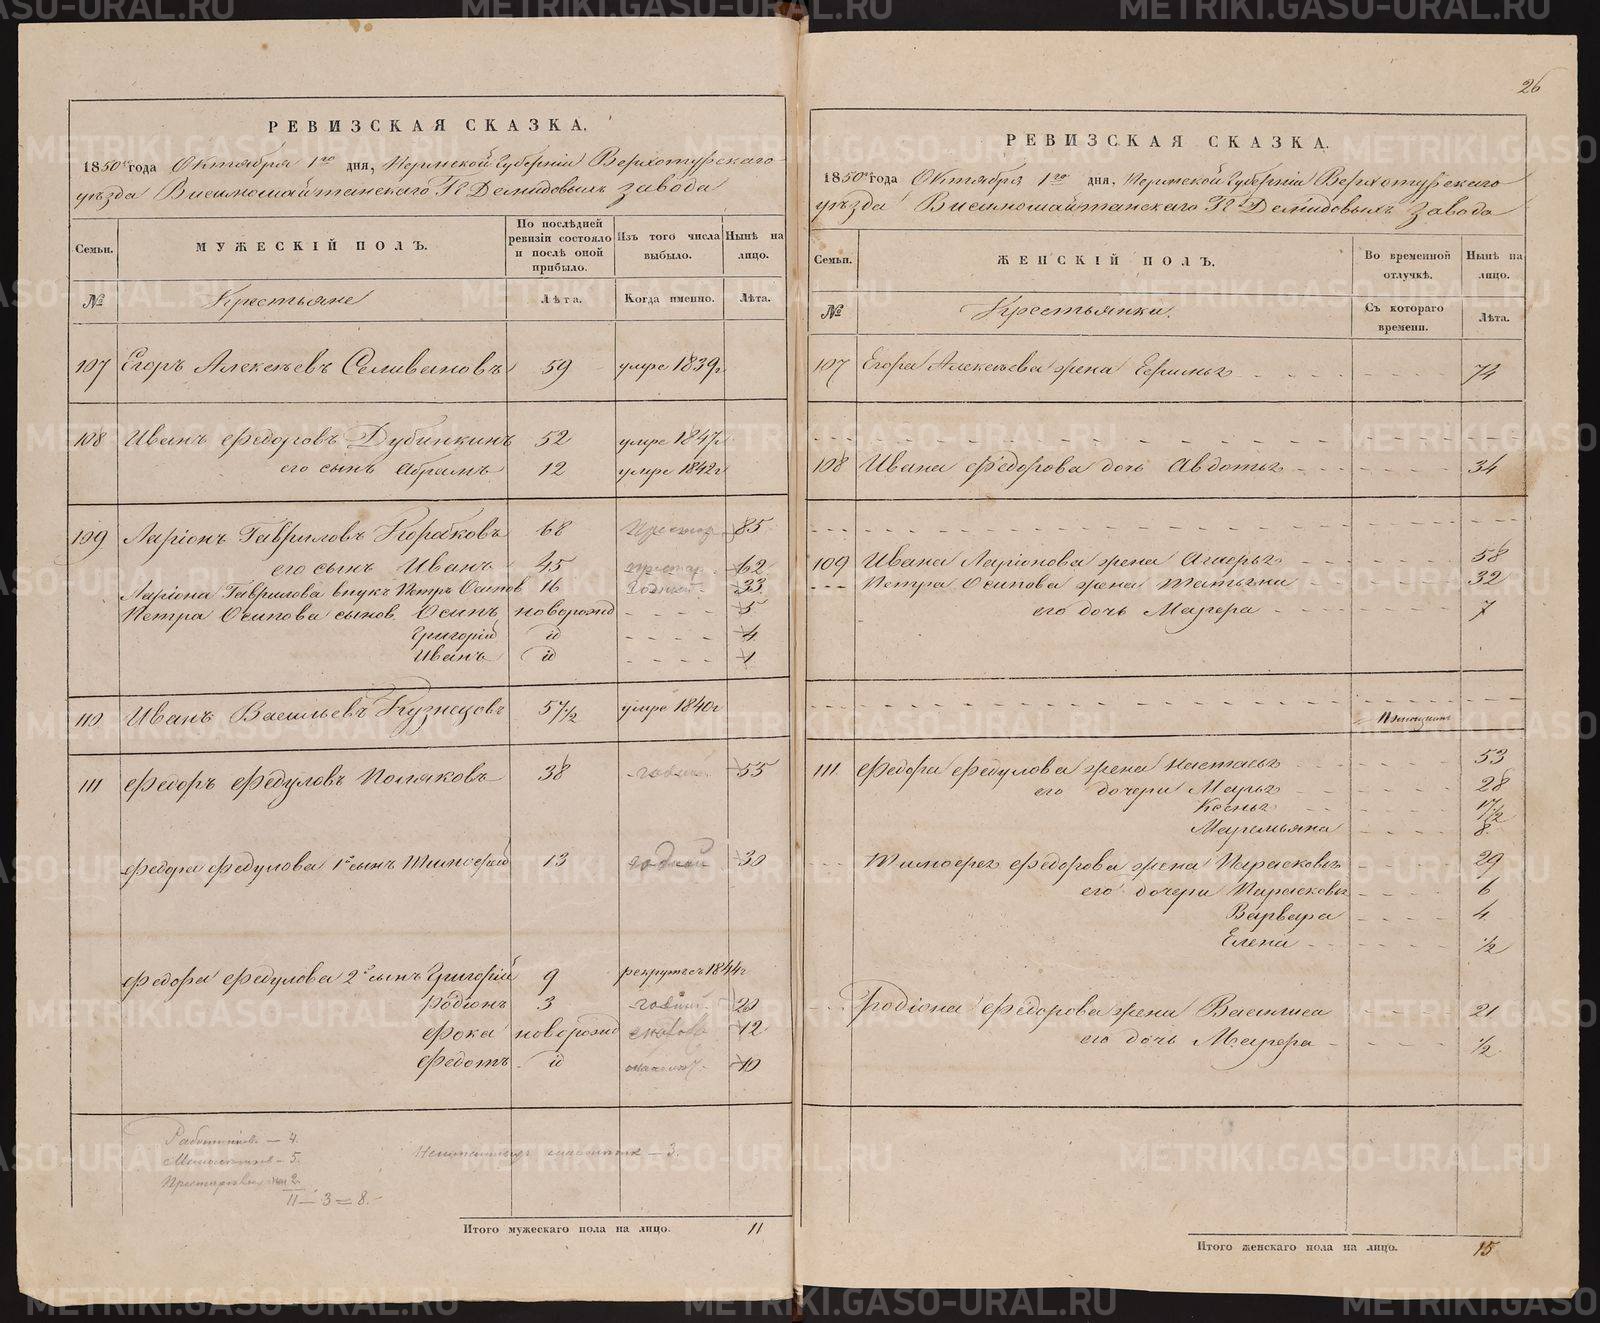 РЕВИЗСКАЯ СКАЗКА.
1850 года Октября 1го дня, Пермской Губернии Верхотурского
уѣзда Висимошайтанского Гг. Демидовыхъ завода
Семьи.
МУЖЕСКІЙ ПОЛЪ.
По послѣдней ревизіи состояло и послѣ оной прибыло.
Изъ того числа выбыло.
Нынѣ на лицо.
№ Крестьяне Лѣта. Когда именно. Лѣта.
107 Егоръ Алексѣевъ Селивановъ 59 умре 1839г
108 Иванъ Федоровъ Дубинкинъ 52 умре 1847г
его сынъ Абрамъ 12 умре 1842г
109 Ларіонъ Гавриловъ Корабковъ 68 85
его сынъ Иванъ 45 престар. 62
Ларіона Гаврилова внукъ Петръ Осипов 16 годный 33
Петра Осипова сынов. Осипъ новорожд 5
Григорій id 4
Иванъ id 1
110 Иванъ Васильевъ Кузнецовъ 57 1/2 умре 1840г
111 Федоръ Федуловъ Поляковъ 38 годный 55
Федора Федулова 1й сынъ Тимофей 13 годный 30
Федора Федулова 2й сынъ Григорій 9 рекрутъ 1844г
Родіонъ 3 годный 20
Фока новорожд 12
Федотъ id 10
Работников. — 4.
Малолетков — 5.
2.
11 — 3 = 8.
— 3.
Итого мужескаго пола на лицо. 11
26
РЕВИЗСКАЯ СКАЗКА.
1850 года Октября 1го дня, Пермской Губерніи Верхотурского
уѣзда Висимошайтанского Гг. Демидовыхъ завода
Семьи.
ЖЕНСКІЙ ПОЛЪ.
Во временной отлучкѣ.
Нынѣ на лицо.
№ Крестьянки. Съ котораго времени. Лѣта.
107 Егора Алексѣева жена Ефимья 74
108 Ивана Федорова дочь Авдотья 34
109 Ивана Ларіонова жена Агафья 58
Петра Осипова жена Татьяна 32
его дочь Марфа 7
111 Федора Федулова жена Настасья 53
его дочери Марья 28
Ксенья 17 1/2
Маремьяна 8
Тимофея Федорова жена Парасковья 29
его дочери Парасковья 6
Варвара 4
Елена 1/2
Родіона Федорова жена Василиса 21
его дочь Марфа 1/2
Итого женскаго пола на лицо. 15
METRIKI.GASO-URAL.RU